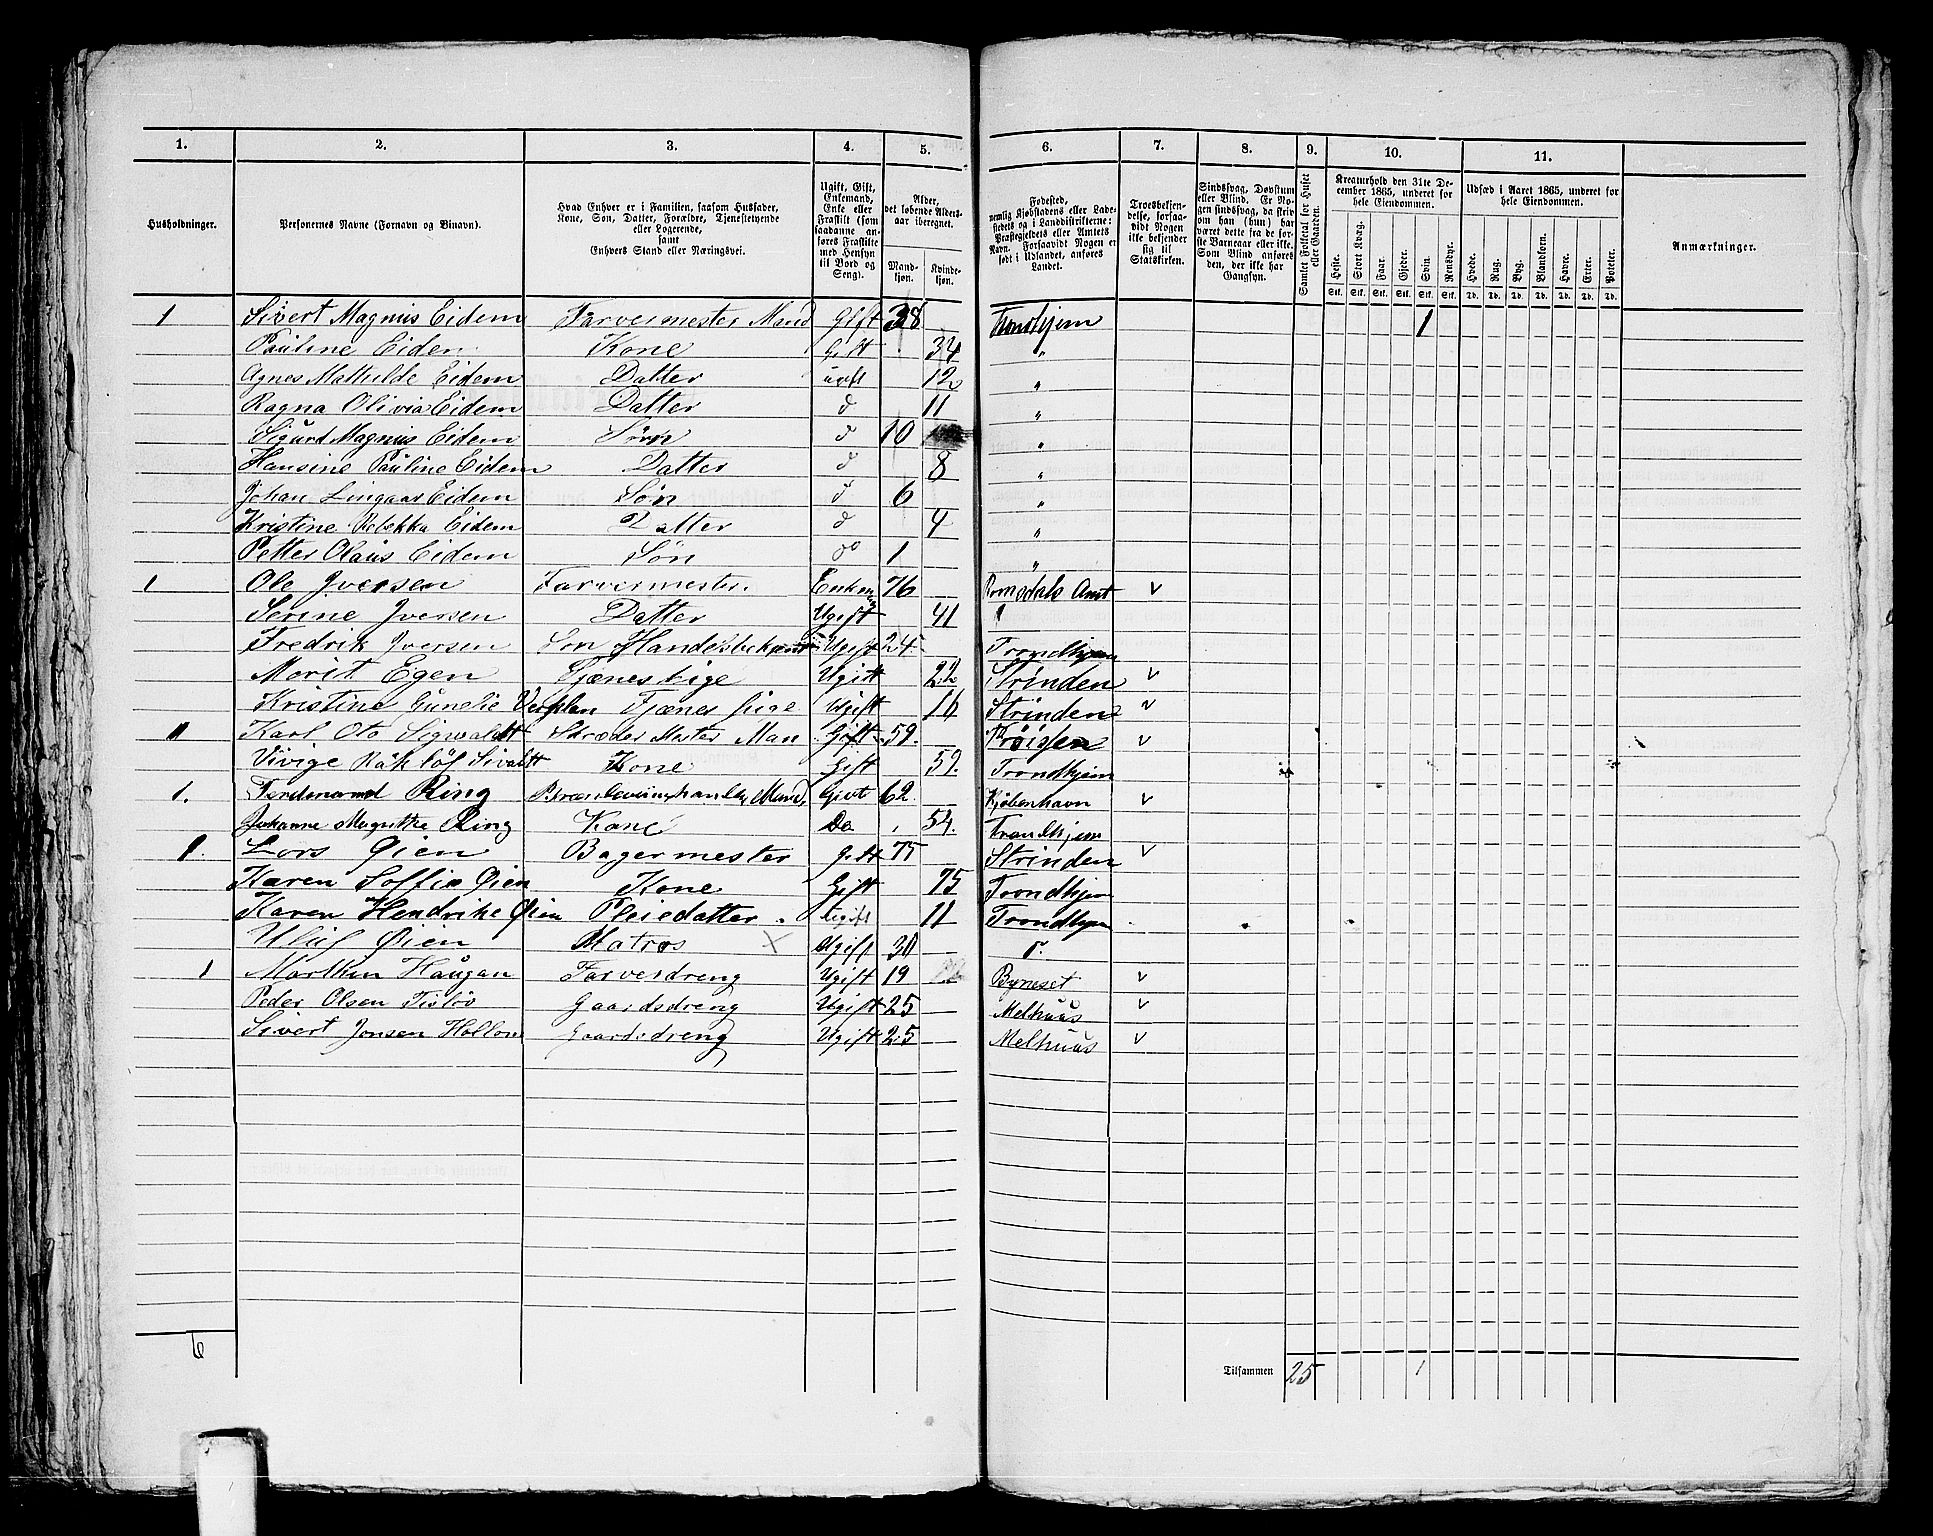 1. 2. 3. 4. 5. 6. 7. 8. 9. 10. 11.
Husholdninger.
Personernes Navne (Fornavn og Binavn).
Hvad Enhver er i Familien, saasom Husfader, Kone, Søn, Datter, Forældre, Tjenestetyende eller Logerende, samt Enhvers Stand eller Næringsvei.
Ugift, Gift, Enkemand, Enke eller Fraskilt (som saadanne anføres Fraskilte med Hensyn til Bord og Seng).
Alder, det løbende Aldersaar iberegnet.
Mandkjøn. Kvindekjøn.
Fødested, nemlig Kjøbstadens eller Ladestedets og i Landdistrikterne: Præstegjeldets eller Amtets Navn. Forsaavidt Nogen er født i Udlandet, anføres Landet.
Troesbekjendelse, forsaavidt Nogen ikke bekjender sig til Statskirken.
Sindssvag, Døvstum eller Blind. Er Nogen sindssvag, da skrives om han (hun) har været dette fra de første Barneaar eller ikke. Som Blind anføres den, der ikke har Gangsyn.
Samlet Folketal for Huset eller Gaarden.
Kreaturhold den 31te December 1865, underet for hele Eiendommen.
Heste. Stort Kvæg. Faar. Gjeder. Svin. Rensdyr.
Stk. Stk. Stk. Stk. Stk. Stk.
Udsæd i Aaret 1865, underet for hele Eiendommen.
Hvede. Rug. Byg. Blandkorn. Havre. Erter. Poteter.
Td. Td. Td. Td. Td. Td. Td.
Anmærkninger.
1 Sivert Magnus Eidem Farvermester Mand Gift 38 Trondhjem 1
Pauline Eidem Kone Gift 34 "
Agnes Mathilde Eidem Datter ugift 12 "
Ragna Olivia Eidem Datter d 11 "
Sigurd Magnus Eidem Søn d 10 "
Hansine Pauline Eidem Datter d 8 "
Johan Lingaas Eidem Søn d 6 "
Kristine Rebekka Eidem Datter d 4 "
Petter Olaus Eidem Søn do 1 "
1 Ole Iversen Farvermester. Enkm 76 Romsdals Amt v
Serine Iversen Datter Ugift 41 "
Fredrik Iversen Søn Ugift 24. Trondhjem
Morit Egen Tjenestpige Ugift 22 Strinden v
Kristine Gunelie Tjænes pige Ugift 16 Strinden v
1 Karl Oto Sigwaldt Skræder Mester Man Gift 59. v
Kone Gift 59. Trondhjem
1. Ferdenand Ring Mand, Givt 62 Kjøbenhavn v
Johanne Magrethe Ring Kone Do 54. Trondhjem
1. Lars Øien Bagermester Gift 75 Strinden v
Karen Soffie Øien Kone Gift 75 Trondhjem
Karen Hendrike Øien Pleiedatter Ugift 11 Trondhjem
Øien Matros x Ugift 30
1 Haugan Farverdreng Ugift 19 Byneset v
Peder Olsen Gaardsdreng Ugift 25 Melhuus v
Sivert Jonsen Gaardsdreng Ugift 25 Melhuus v
6 Tilsammen 25 1